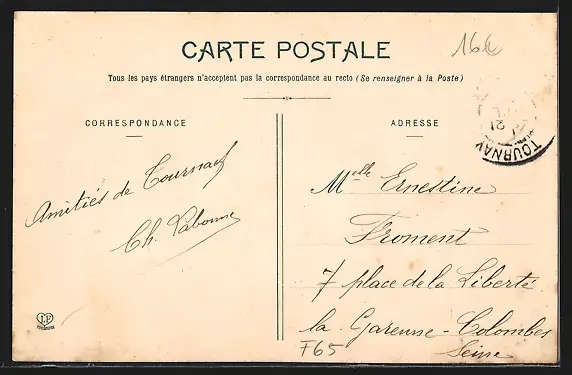 CARTE POSTALE
16€
Tous les pays étrangers n'acceptent pas la correspondance au recto (Se renseigner à la Poste)
CORRESPONDANCE
Amitiés de Tournay
Ch. Labonne
ADRESSE
TOURNAY
21
Melle Ernestine
Froment
7 place de la Liberté
la Garenne-Colombes
Seine
F65
LF